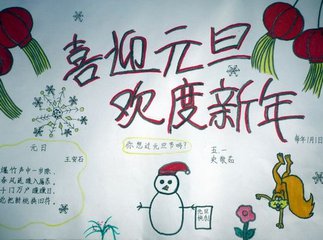 喜迎元旦
欢度新年
元日
王安石
爆竹声中一岁除，
春风送暖入屠苏。
千门万户曈曈日，
总把新桃换旧符。
你想过元旦节吗？
五一
每年1月1日
元旦
快乐